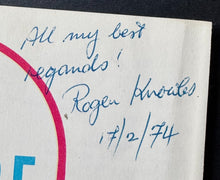 All my best
regards!
Roger Knowles.
17/2/74